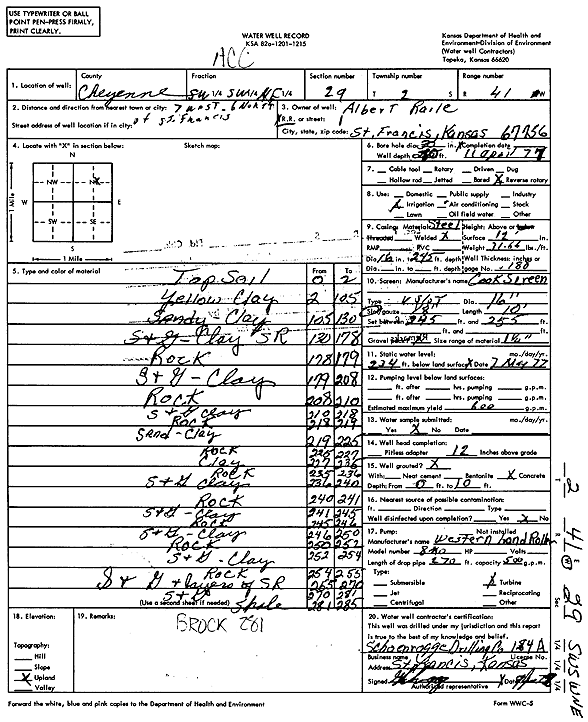 USE TYPEWRITER OR BALL
POINT PEN-PRESS FIRMLY,
PRINT CLEARLY.
WATER WELL RECORD
KSA 82a-1201-1215
Kansas Department of Health and
Environment-Division of Environment
(Water well Contractors)
Topeka, Kansas 66620
ACC
1. Location of well:
County Cheyenne
Fraction SW 1/4 SW 1/4 NE 1/4
Section number 29
Township number T 2 S
Range number R 41 W
2. Distance and direction from nearest town or city: 7 west - 6 North
of St. Francis
Street address of well location if in city:
3. Owner of well: Albert Raile
R.R. or street:
City, state, zip code: St. Francis, Kansas 67756
4. Locate with "X" in section below:
Sketch map:
N
NW NE
W E
SW SE
S
1 Mile
1 Mile
5. Type and color of material From To
Top Soil 0 2
Yellow Clay 2 105
Sandy - Clay 105 130
S + G - Clay SR 130 178
Rock 178 179
S + G - Clay 179 208
Rock 208 210
S + G Clay 210 218
Rock 218 219
Sand - Clay 219 225
Rock 225 227
Clay 227 235
Rock 235 236
S + G Clay 236 240
Rock 240 241
S + G - Clay 241 245
Rock 245 246
S + G - Clay 246 250
Rock 250 252
S + G - Clay 252 254
Rock 254 255
S & G + layers of SR 255 270
S + G 270 281
(Use a second sheet if needed) Shale 281 285
6. Bore hole dia. in. Completion date
Well depth ft. 11 April 77
7. Cable tool Rotary Driven Dug
Hollow rod Jetted Bored X Reverse rotary
8. Use: Domestic Public supply Industry
X Irrigation Air conditioning Stock
Lawn Oil field water Other
9. Casing: Material Steel Height: Above or below
Threaded Welded X Surface 12 in.
RMP PVC Weight lbs./ft.
Dia. 16 in. to 245 ft. depth Wall Thickness: inches or
Dia. in. to ft. depth gage No. .188
10. Screen: Manufacturer's name Cook Screen
Type Dia. 16"
Slot/gauze Length 10'
Set between 245 ft. and 255 ft.
ft. and ft.
Gravel pack? Size range of material
11. Static water level: mo./day/yr.
234 ft. below land surface Date 7 May 77
12. Pumping level below land surfaces:
ft. after hrs. pumping g.p.m.
ft. after hrs. pumping g.p.m.
Estimated maximum yield 600 g.p.m.
13. Water sample submitted: mo./day/yr.
Yes X No Date
14. Well head completion:
Pitless adapter 12 Inches above grade
15. Well grouted? X
With: Neat cement Bentonite X Concrete
Depth: From 0 ft. to 10 ft.
16. Nearest source of possible contamination:
ft. Direction Type
Well disinfected upon completion? Yes X No
17. Pump: Not installed
Manufacturer's name Western Land Roller
Model number HP Volts
Length of drop pipe 270 ft. capacity 500 g.p.m.
Type:
Submersible X Turbine
Jet Reciprocating
Centrifugal Other
18. Elevation:
19. Remarks:
BROCK 281
Topography:
Hill
Slope
X Upland
Valley
20. Water well contractor's certification:
This well was drilled under my jurisdiction and this report
is true to the best of my knowledge and belief.
Schoenrogge Drilling Co. 184A
Business name License No.
Address St. Francis, Kansas
Signed Date
Authorized representative
Forward the white, blue and pink copies to the Department of Health and Environment
Form WWC-5
T 2 R 41 E W Sec 29 SW SW NE
1/4 1/4 1/4